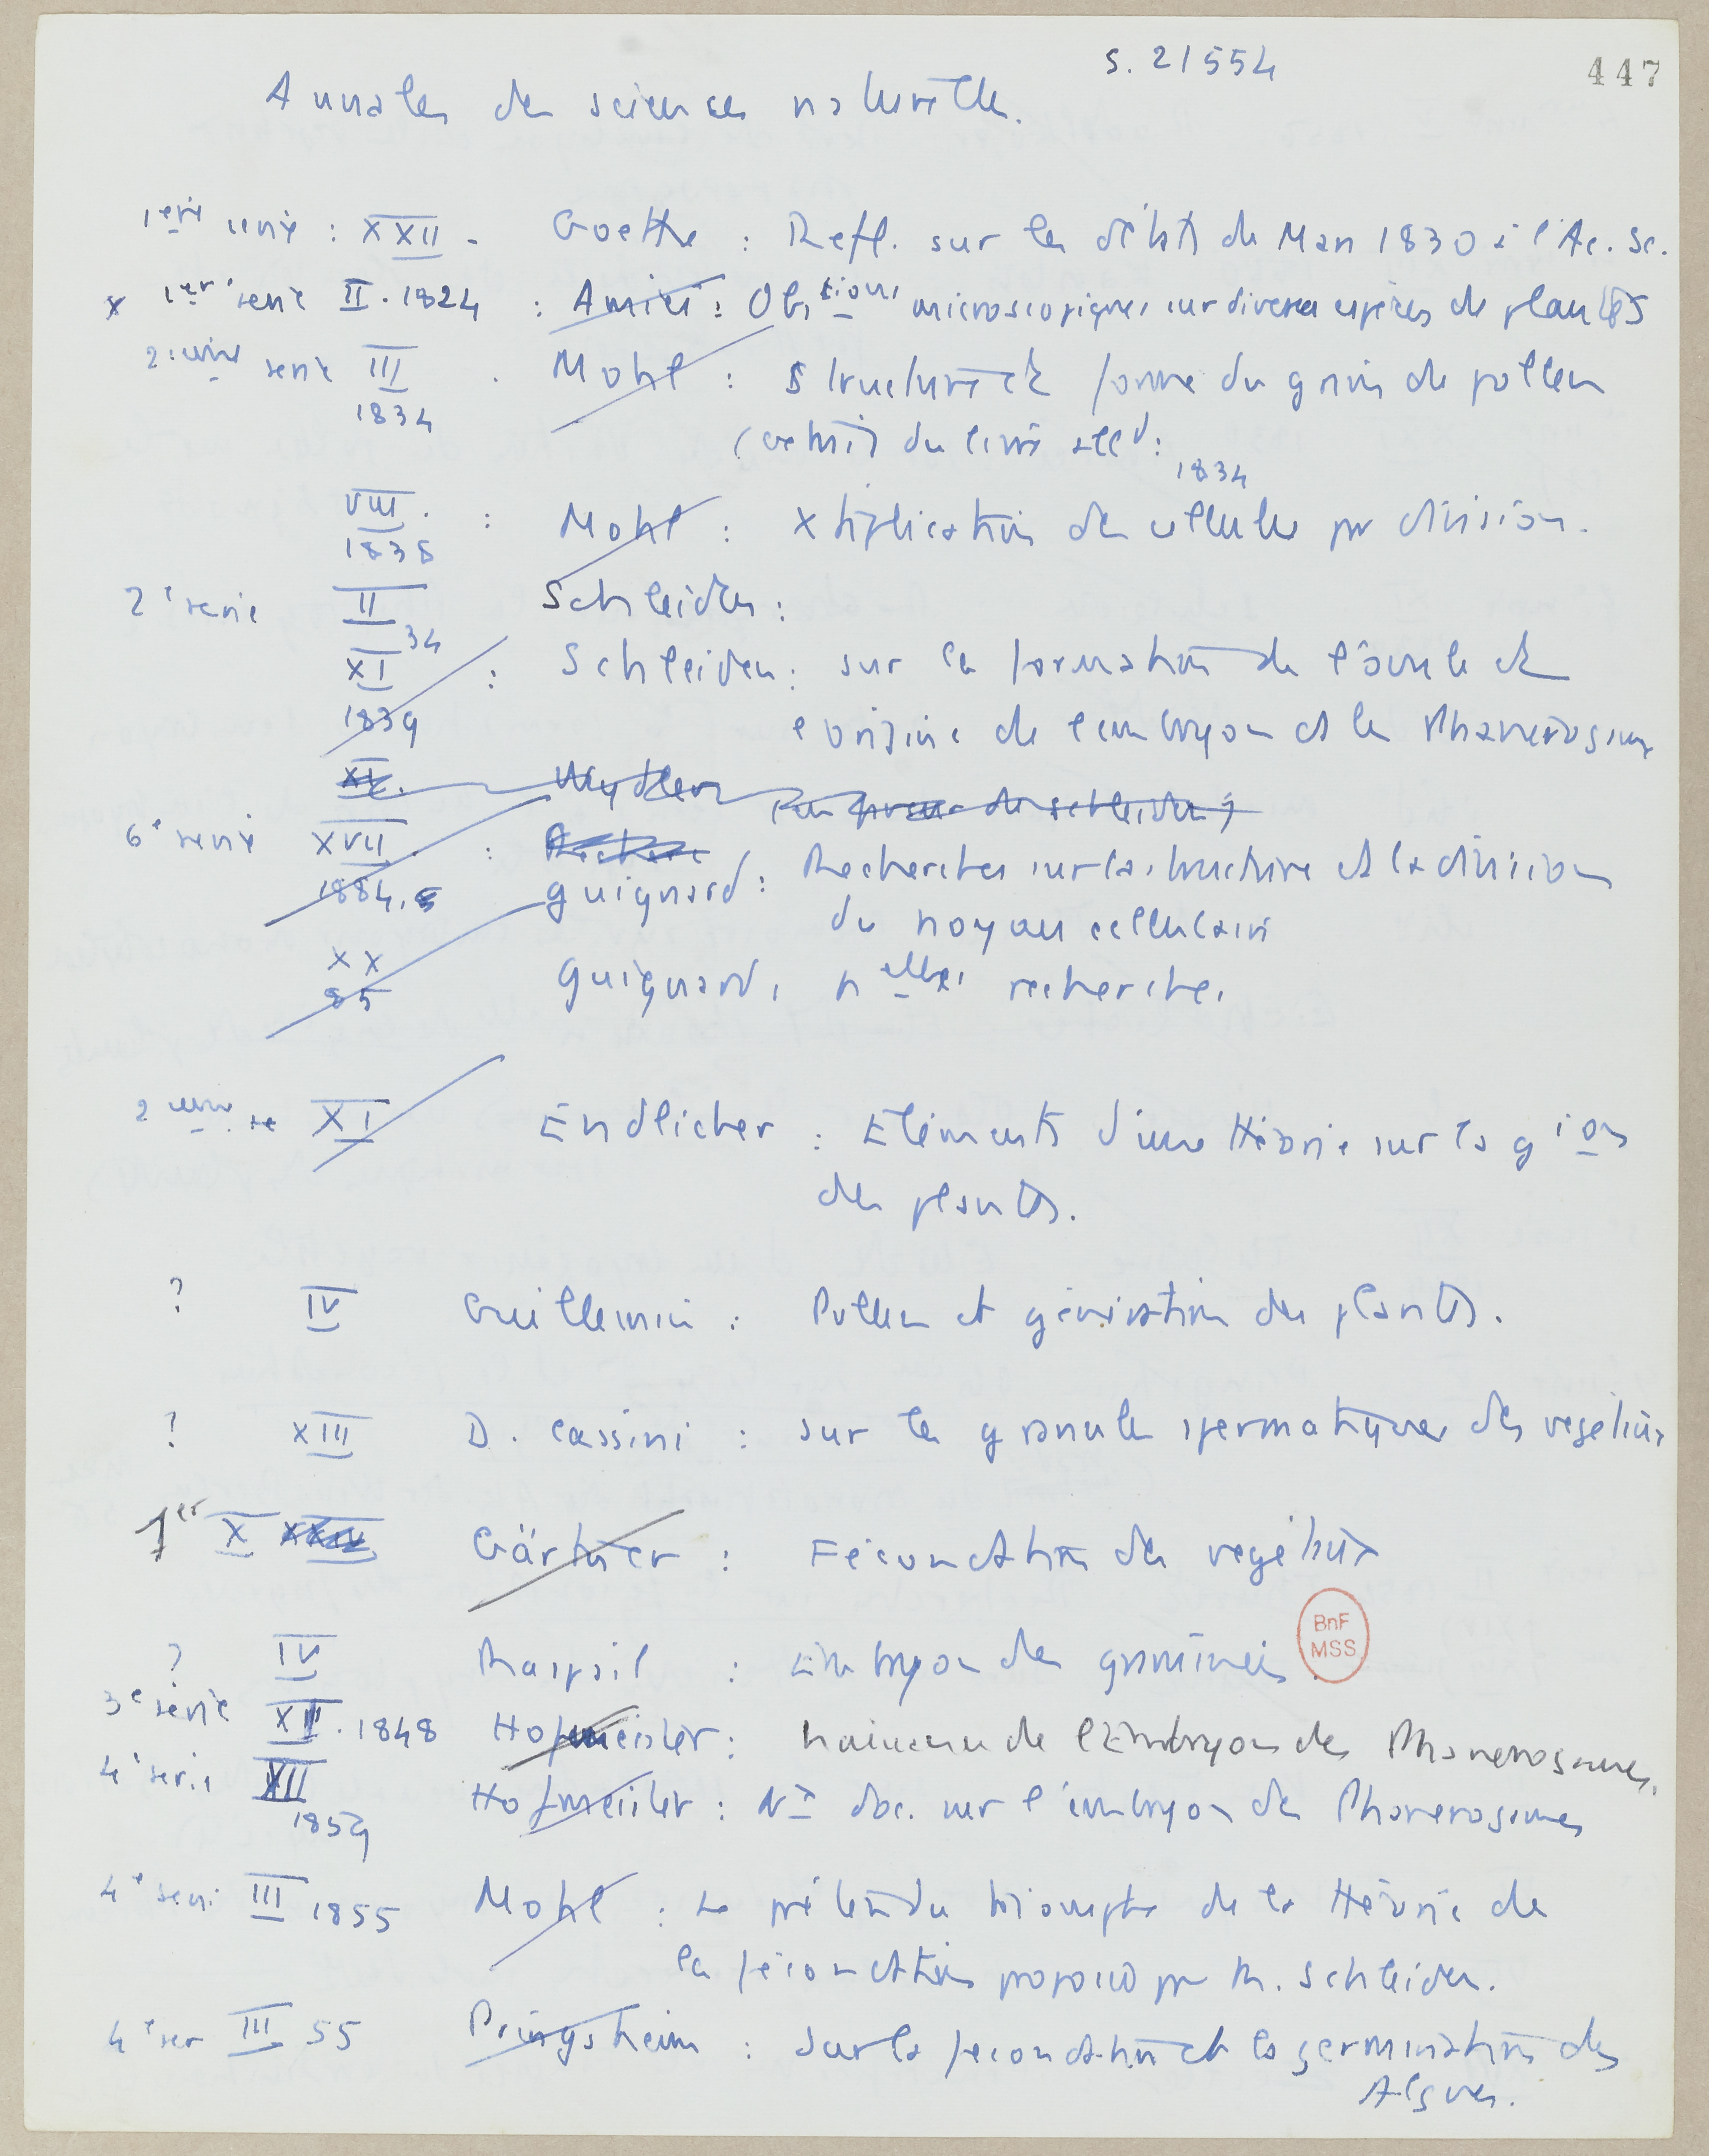 S. 21554
447
Annales des sciences naturelles.
1ere serie : XXII - Goethe : Refl. sur les débats de Mars 1830 à l'Ac. Sc.
x 1er serie II. 1824 : Amici : Obstions microscopiques sur diverses espèces de plantes
2ieme serie III . Mohl : Structure et forme du grain de pollen
1834
(extrait du livre alld : 1834
VIII. : Mohl : Xtiplication des cellules par division.
1838
2e serie II Schleiden :
34
XI : Schleiden : sur la formation de l'ovule et
1839 l'origine de l'embryon et les Phanerogames
XI. Wydler (en faveur de Schleiden)
6e serie XVII. : Recherche
1884.5 Guignard : Recherches sur la structure et la division
du noyau cellulaire
XX Guignard, nelles recherches
85
2eme se XI Endlicher : Eléments d'une théorie sur la gion
des plantes.
? IV Guillemin : Pollen et génération des plantes.
? XIII D. Cassini : sur les granules spermatiques des vegetaux
1er X XXIV Gärtner : Fécondation des végétaux
? IV Raspail : Embryon des graminées.
BnF
MSS
3e série XI. 1848 Hofmeister : naissance de l'Embryon des Phanerogames.
4e serie XII Hofmeister : Nx doc. sur l'embryon des Phanerogames
1859
4e serie III 1855 Mohl : Le prétendu triomphe de la théorie de
la fécondation proposée par M. Schleiden.
4e ser III 55 Pringsheim : Sur la fecondation et la germination des
Algues.